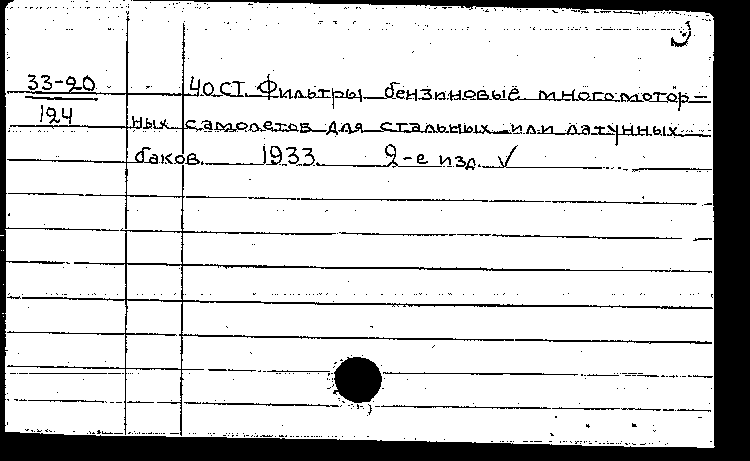 33-20
124
ЧОСТ. Фильтры бензиновые многомотор-
ных самолетов для стальных или латунных
баков. 1933. 2-е изд. √